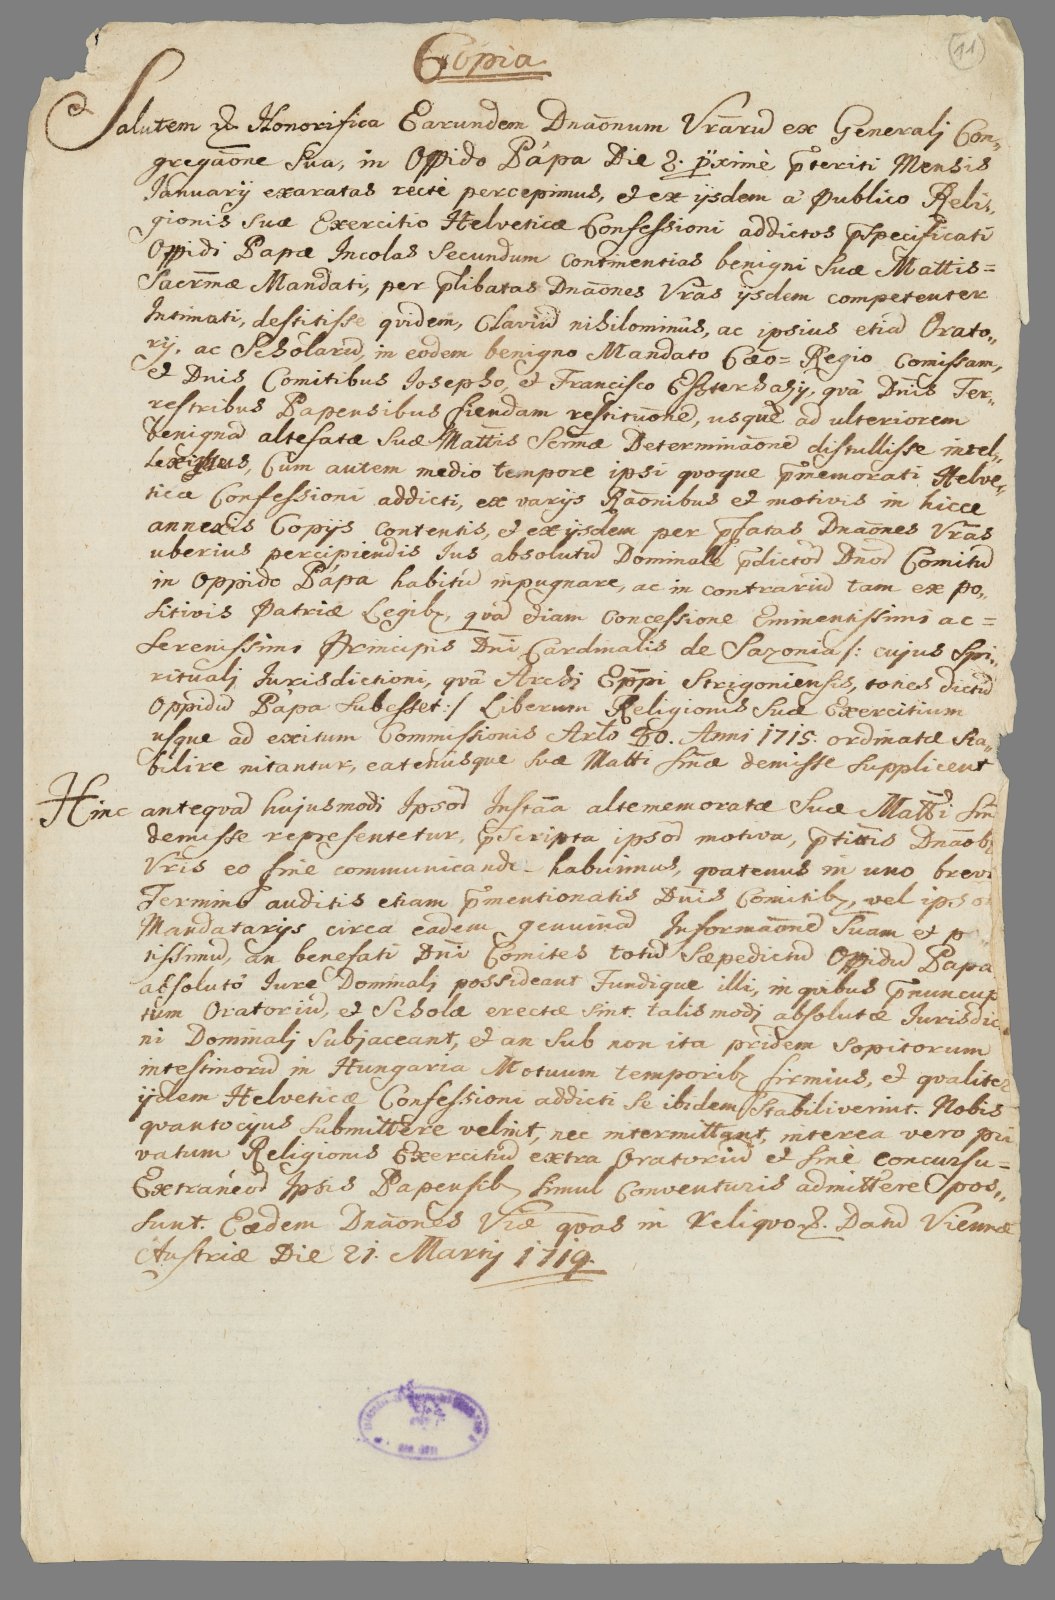 Copia
11
Salutem &c. Honorifica Earundem Dnāonum Vrārū ex Generalj Con„
gregāone Sua, in Oppido Pápa Die 8. p̈ximè p̄teriti Mensis
Januarij exaratas rectè percepimus, et ex ijsdem à Publico Reli„
gionis suæ Exercitio Helveticæ Confessioni addictos p̄specificati
Oppidi Papæ Incolas secundum continentias benigni Suæ Mattis=
Sacrm̄æ Mandati, per p̄libatas Dnāones Vrās ijsdem competenter
Intimati, destitisse qvidem, Claviū nihilominùs, ac ipsius etiā Orato„
rij, ac Scholarū, in eodem benigno Mandato Cæo= Regio comissam,
et Dnis Comitibus Josepho, et Francisco Eszterhasÿ, qvà Dnīs Ter„
restribus Papensibus fiendam restituōnē, usquè ad ulteriorem
benignā altefatæ Suæ Mattīs Scrm̄æ Determināonē distullisse intel„
leximus, Cum autem medio tempore ipsi qvoque p̄memorati Helve„
ticæ Confessioni addicti, ex varijs Rāonibus et motivis in hicce
annexis Copijs contentis, et ex ijsdem per p̄fatas Dnāones Vrās
uberius percipiendis Jus absolutū Dominale p̄dictoā Dnoā Comitū
in Oppido Pápa habitū inpugnare, ac in contrariū tam ex po„
sitivis Patriæ Legibꝫ, qvā etiam concessione Eminentissimi ac=
Serenissimi Principis Dni Cardinalis de Saxonia /: cujus Spi„
ritualj Jurisdictioni, qvà Archi Epp̄i Strigoniensis, toties dictū
Oppidū Pápa subesset :/ Liberum Religionis Suæ Exercitium
usque ad exitum Commissionis Artlo 30. Anni 1715. ordinatæ sta„
bilire nitantur, eatenusque suæ Matti Sm̄æ demisse supplicent
Hinc anteqvā hujusmodi Ipsoā Instāa altememoratæ Suæ Mattī Sm̄
demisse repræsentetur, p̄scripta ipsoā motiva, p̄titis Dnāobꝫ
Vrīs eo fine communicandi habuimus, qvatenus in uno brevi
Termino auditis etiam p̄mentionatis Dnīs Comitibꝫ, vel ipso
Mandatarijs circa eadem genuinā Informāonē Suam et po„
tissimū, an benefati Dni Comites totū Sæpedictū Oppidū Papa
absoluto Jure Dominalj possideant Fundique illi, in qvibus p̄nuncup
tum Oratoriū, et Scholæ erectæ sint. talismodj absolutæ Jurisdic
ni Dominalj subjaceant, et an sub non ita pridem sopitorum
intestinorū in Hungaria Motuum temporibꝫ firmius, et qvaliter
ijdem Helveticæ Confessioni addicti se ibidem stabiliverint. Nobis
qvantocijus submittere velint, nec intermittant, interea vero pri
vatum Religionis Exercitiū extra Oratoriū et sine concursu=
Extraneoā Ipsis Papensibꝫ simul conventuris admittere pos„
sunt. Eædem Dnāones Vræ qvas in reliquo &. Datū Viennæ
Austriæ Die 21. Martij 1719.